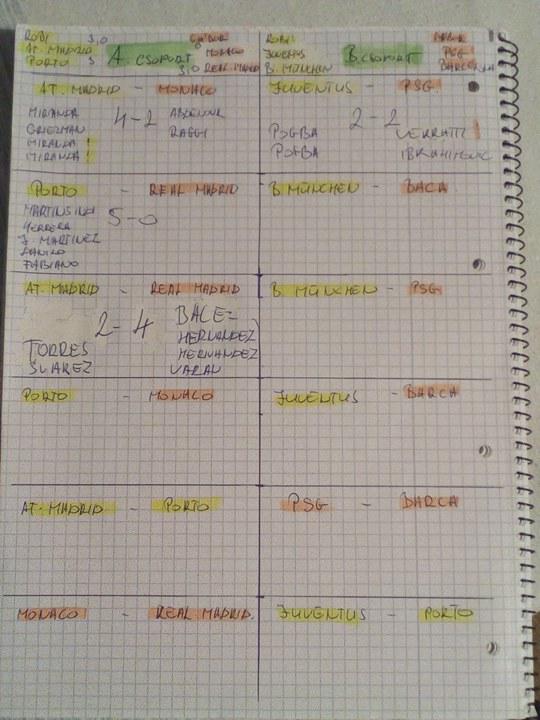 ROBI 3,0
AT. MADRID
PORTO 3
A. CSOPORT
GÁBOR
MONACO
3,0 REAL MADRID
ROBI
JUVENTUS
B. MÜNCHEN
B. CSOPORT
GÁBOR
PSG
BARCELONA
AT. MADRID - MONACO
MIRANDA 4-2 ABDENOUR
GRIEZMAN RAGGI
MIRANDA !
MIRANDA !
JUVENTUS - PSG
2-2
POGBA VERRATTI
POGBA IBRAHIMOVIC
PORTO - REAL MADRID
MARTINS INDI 5-0
HERRERA
J. MARTINEZ
DANILO
FABIANO
B. MÜNCHEN - BACA
AT. MADRID - REAL MADRID
2-4 BALE
HERNANDEZ
TORRES HERNANDEZ
SUAREZ VARAN
B. MÜNCHEN - PSG
PORTO - MONACO
JUVENTUS - BARCA
AT. MADRID - PORTO
PSG - BARCA
MONACO - REAL MADRID.
JUVENTUS - PORTO